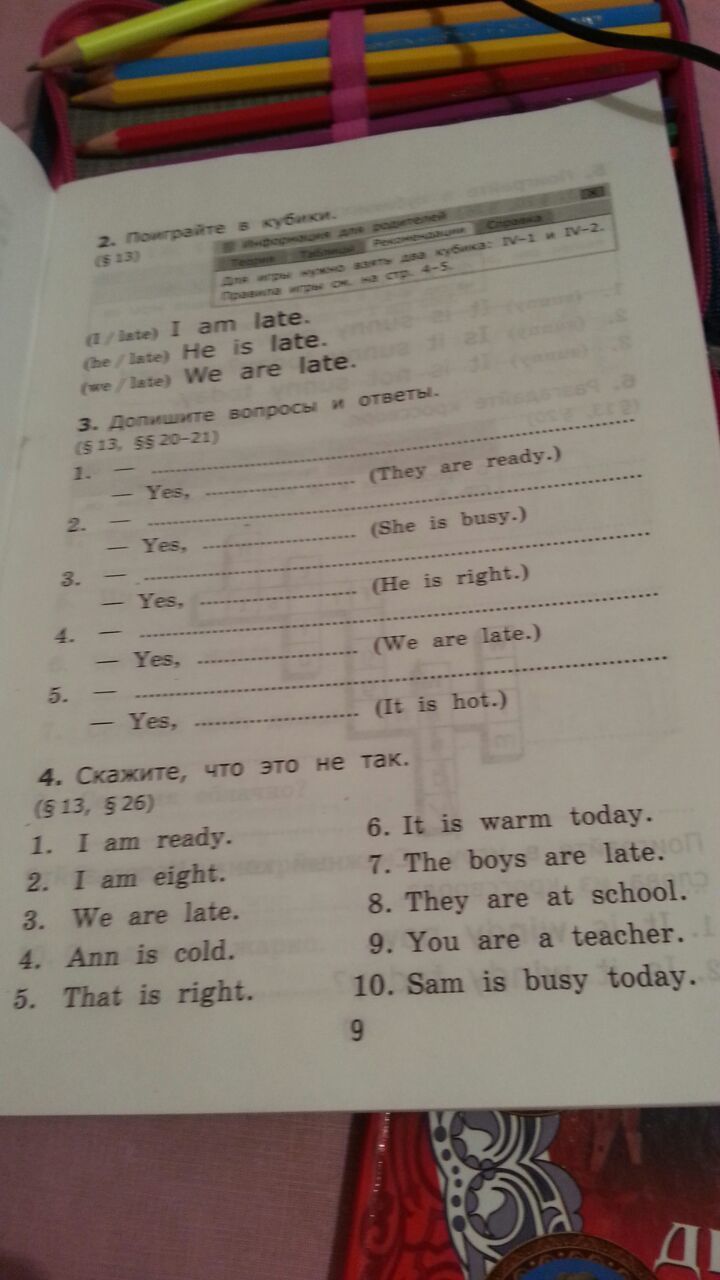 2. Поиграйте в кубики.
(§ 13)
Информация для родителей
Теория Таблицы Рекомендации Справка
Для игры нужно взять два кубика: IV–1 и IV–2.
Правила игры см. на стр. 4–5.
(I / late) I am late.
(he / late) He is late.
(we / late) We are late.
3. Допишите вопросы и ответы.
(§ 13, §§ 20–21)
1. — ....................
— Yes, .................... (They are ready.)
2. — ....................
— Yes, .................... (She is busy.)
3. — ....................
— Yes, .................... (He is right.)
4. — ....................
— Yes, .................... (We are late.)
5. — ....................
— Yes, .................... (It is hot.)
4. Скажите, что это не так.
(§ 13, § 26)
1. I am ready.
2. I am eight.
3. We are late.
4. Ann is cold.
5. That is right.
6. It is warm today.
7. The boys are late.
8. They are at school.
9. You are a teacher.
10. Sam is busy today.
9